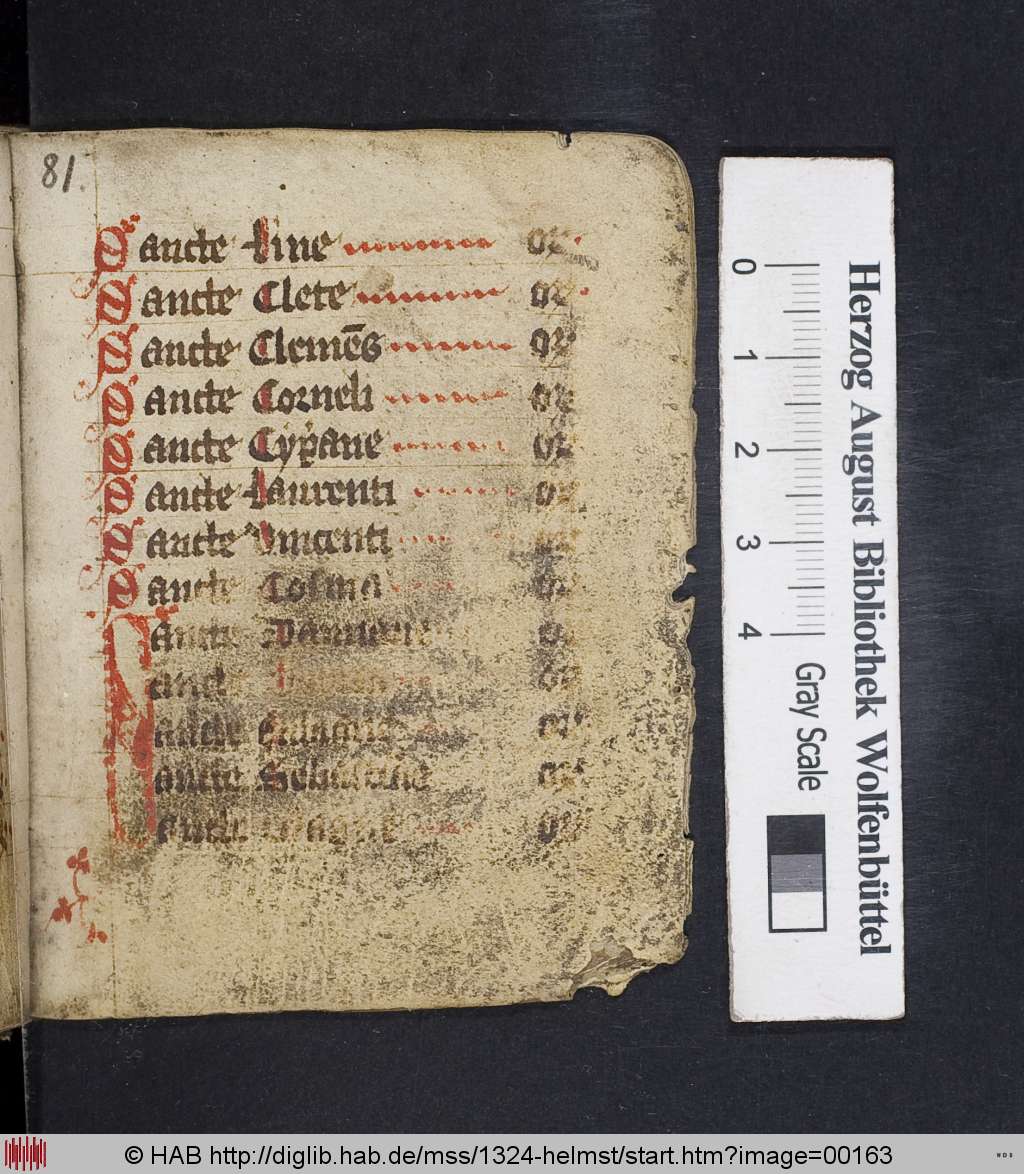 81.
Sancte Line or
Sancte Clete or
Sancte Clemēs or
Sancte Corneli or
Sancte Cypane or
Sancte Laurenti or
Sancte Vincenti or
Sancte Cosma or
Sancte or
Sancte or
Sancte or
Sancte or
Sancte Magne or
Herzog August Bibliothek Wolfenbüttel
0 1 2 3 4
Gray Scale
© HAB http://diglib.hab.de/mss/1324-helmst/start.htm?image=00163